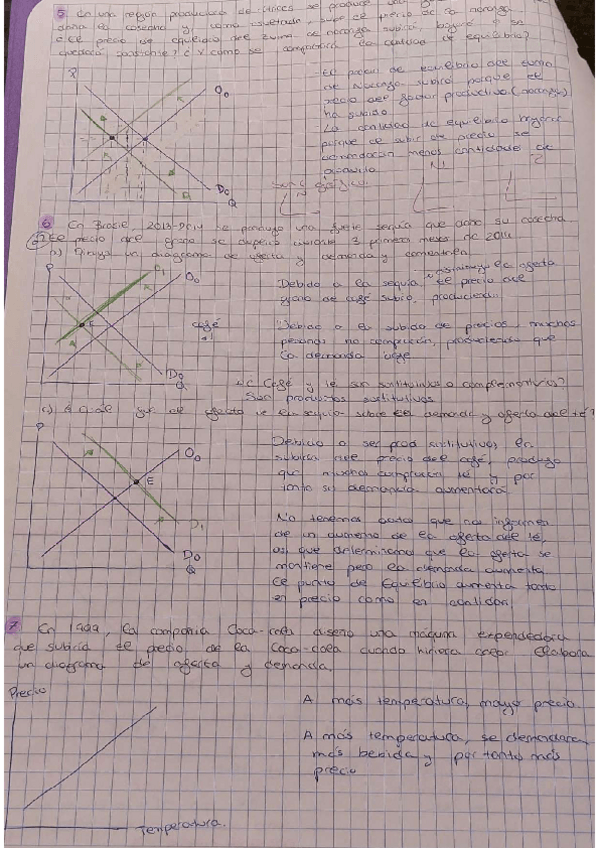 5. En una región productora de cítricos se produce
daña la cosecha y como resultado, sube el precio de la naranja
¿El precio de equilibrio del zumo de naranja subirá, bajará o se
quedará constante? ¿Y cómo se comportará la cantidad de equilibrio?
P
O₀
D₀
Q
El precio de equilibrio del zumo
de naranja subirá porque el
precio del factor productivo (naranjas)
ha subido.
La cantidad de equilibrio bajará
porque al subir el precio se
demandarán menos cantidades de
producto.
6 En Brasil, 2013-2014 se produjo una fuerte sequía que daño su cosecha
El precio del grano se durante 3 primeros meses de 2014
a) Dibuja un diagrama de oferta y demanda y comentarla
P
O₁
O₀
E
D₀
Q
café
Debido a la sequía, el precio del
grano de café subió, produciendo
la oferta
Debido a la subida de precios, muchas
personas no comprarían, produciendo que
la demanda baje
¿El Café y té son sustitutivos o complementarios?
Son productos sustitutivos
c) ¿A qué de efecto de la sequía sobre la demanda y oferta del té?
P
O₀
E
D₁
D₀
Q
Debido a ser prod sustitutivos, la
subida del precio del café, produjo
que muchos compraran té y por
tanto su demanda aumentará
No tenemos datos que nos informen
de un aumento de la oferta del té,
así que determinamos que la oferta se
mantiene pero la demanda aumenta
El punto de Equilibrio aumenta tanto
en precio como en cantidad
7 En 1999, la compañía Coca-cola diseñó una máquina expendedora
que subiría el precio de la Coca-cola cuando hiciera calor. Elabora
un diagrama de oferta y demanda.
Precio
Temperatura.
A más temperatura, mayor precio
A más temperatura, se demandara
más bebida y por tanto más
precio